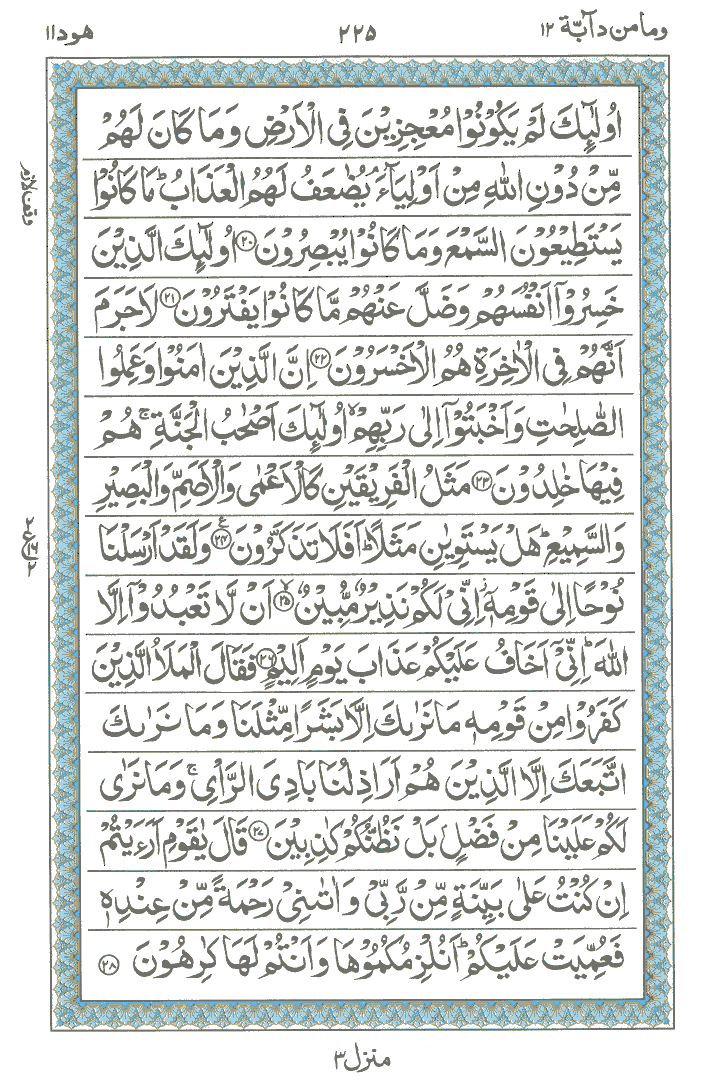 ومامن دآبّة ١٢ ٢٢٥ هود ١١
اُولٰٓئِكَ لَمْ يَكُوْنُوْا مُعْجِزِيْنَ فِى الْاَرْضِ وَمَا كَانَ لَهُمْ
مِّنْ دُوْنِ اللّٰهِ مِنْ اَوْلِيَآءَ ۘ يُضٰعَفُ لَهُمُ الْعَذَابُ ؕ مَا كَانُوْا
يَسْتَطِيْعُوْنَ السَّمْعَ وَمَا كَانُوْا يُبْصِرُوْنَ ﴿٢٠﴾ اُولٰٓئِكَ الَّذِيْنَ
خَسِرُوْٓا اَنْفُسَهُمْ وَضَلَّ عَنْهُمْ مَّا كَانُوْا يَفْتَرُوْنَ ﴿٢١﴾ لَا جَرَمَ
اَنَّهُمْ فِى الْاٰخِرَةِ هُمُ الْاَخْسَرُوْنَ ﴿٢٢﴾ اِنَّ الَّذِيْنَ اٰمَنُوْا وَعَمِلُوا
الصّٰلِحٰتِ وَاَخْبَتُوْٓا اِلٰى رَبِّهِمْ ۙ اُولٰٓئِكَ اَصْحٰبُ الْجَنَّةِ ۚ هُمْ
فِيْهَا خٰلِدُوْنَ ﴿٢٣﴾ مَثَلُ الْفَرِيْقَيْنِ كَالْاَعْمٰى وَالْاَصَمِّ وَالْبَصِيْرِ
وَالسَّمِيْعِ ؕ هَلْ يَسْتَوِيٰنِ مَثَلًا ؕ اَفَلَا تَذَكَّرُوْنَ ﴿٢٤﴾ ع وَلَقَدْ اَرْسَلْنَا
نُوْحًا اِلٰى قَوْمِهٖۤ ؗ اِنِّىْ لَكُمْ نَذِيْرٌ مُّبِيْنٌ ﴿٢٥﴾ ۙ اَنْ لَّا تَعْبُدُوْٓا اِلَّا
اللّٰهَ ؕ اِنِّىْٓ اَخَافُ عَلَيْكُمْ عَذَابَ يَوْمٍ اَلِيْمٍ ﴿٢٦﴾ فَقَالَ الْمَلَاُ الَّذِيْنَ
كَفَرُوْا مِنْ قَوْمِهٖ مَا نَرٰىكَ اِلَّا بَشَرًا مِّثْلَنَا وَمَا نَرٰىكَ
اتَّبَعَكَ اِلَّا الَّذِيْنَ هُمْ اَرَاذِلُنَا بَادِىَ الرَّاْىِ ۚ وَمَا نَرٰى
لَكُمْ عَلَيْنَا مِنْ فَضْلٍۢ بَلْ نَظُنُّكُمْ كٰذِبِيْنَ ﴿٢٧﴾ قَالَ يٰقَوْمِ اَرَءَيْتُمْ
اِنْ كُنْتُ عَلٰى بَيِّنَةٍ مِّنْ رَّبِّىْ وَاٰتٰىنِىْ رَحْمَةً مِّنْ عِنْدِهٖ
فَعُمِّيَتْ عَلَيْكُمْ ؕ اَنُلْزِمُكُمُوْهَا وَاَنْتُمْ لَهَا كٰرِهُوْنَ ﴿٢٨﴾
منزل ٣